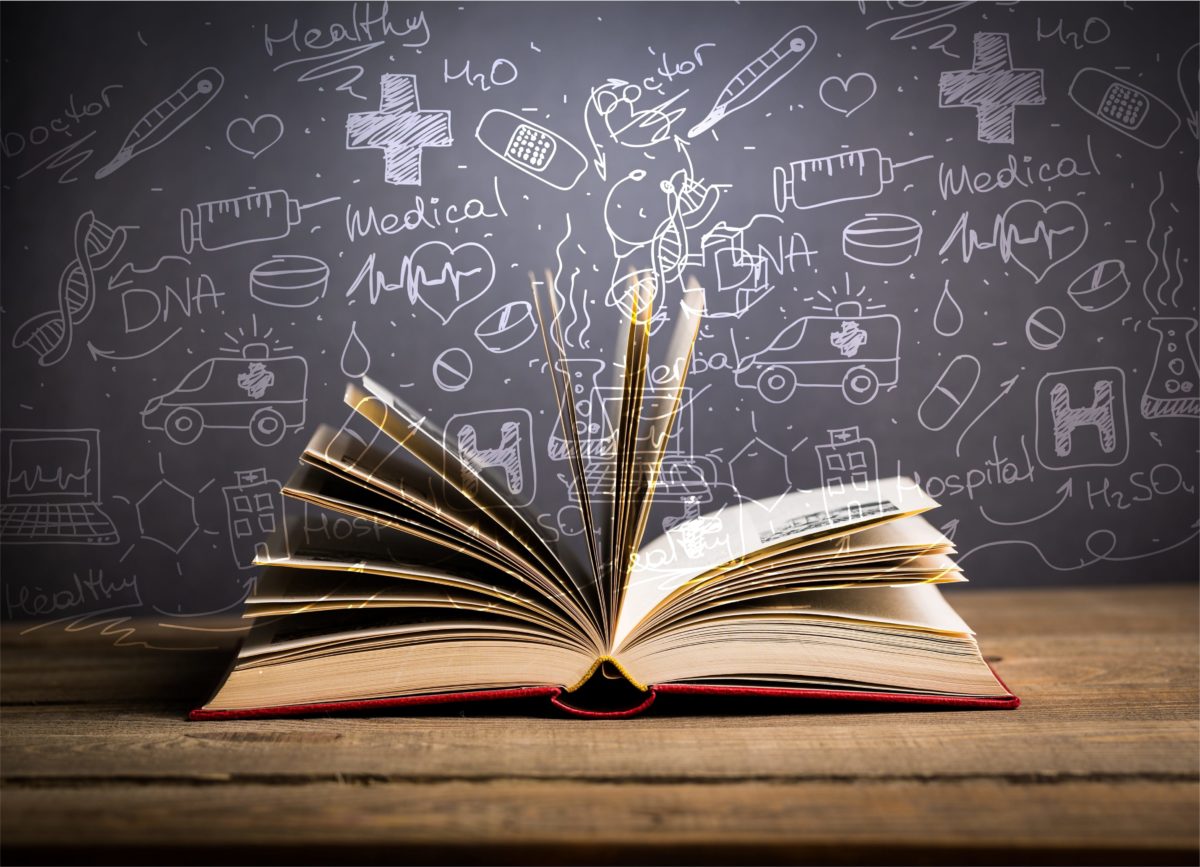 Healthy
H₂O
Doctor
H₂O
Doctor
Medical
Medical
DNA
DNA
Herbal
H
H
Hospital
Hospital
H₂SO₄
SO
Healthy
Healthy